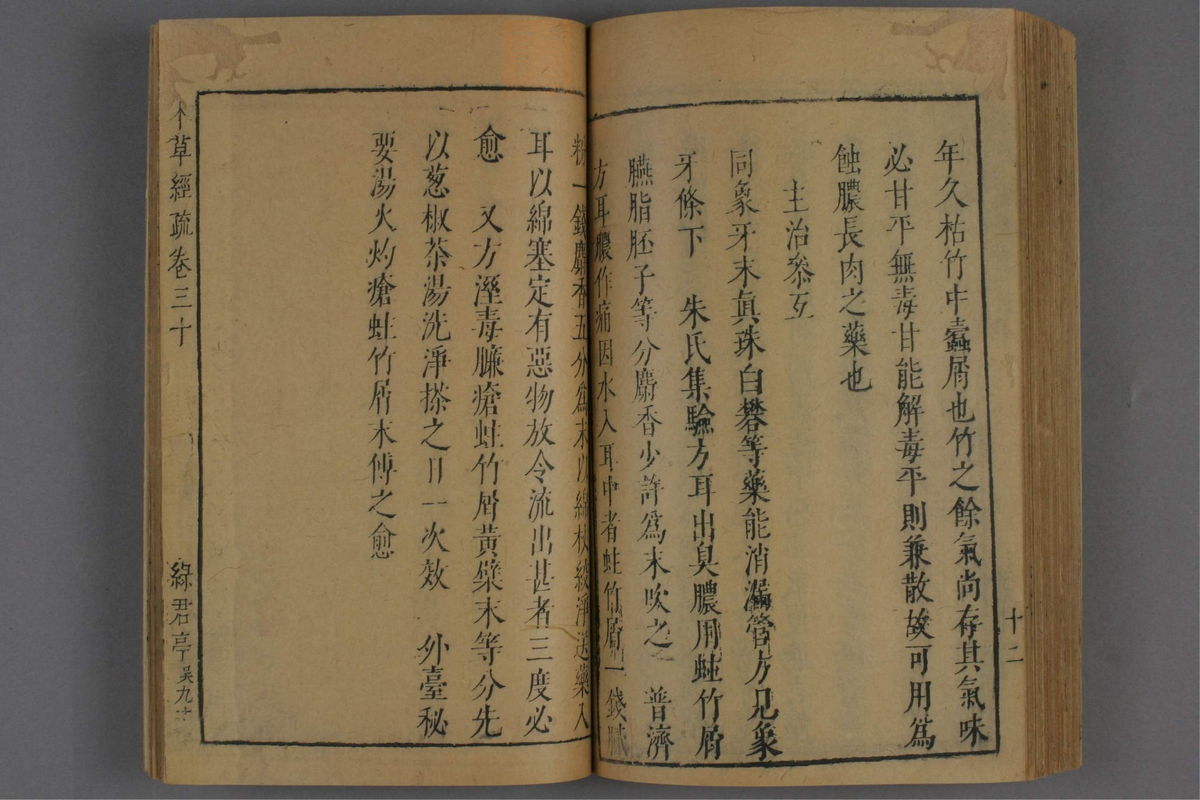 年久枯竹中蠹屑也竹之餘氣尚存其氣味
必甘平無毒甘能解毒平則兼散故可用爲
蝕膿長肉之藥也
主治叅互
同象牙末眞珠白礬等藥能消漏管方見象
牙條下 朱氏集驗方耳出臭膿用蛀竹屑
臙脂胚子等分麝香少許爲末吹之 普濟
方耳膿作痛因水入耳中者蛀竹屑一錢膩
粉一錢麝香五分爲末以綿杖繳淨送藥入
耳以綿塞定有惡物放令流出甚者三度必
愈 又方溼毒臁瘡蛀竹屑黃檗末等分先
以葱椒茶湯洗淨搽之日一次效 外臺秘
要湯火灼瘡蛀竹屑末傅之愈
十二
草經疏卷三十
綠君亭
吳九